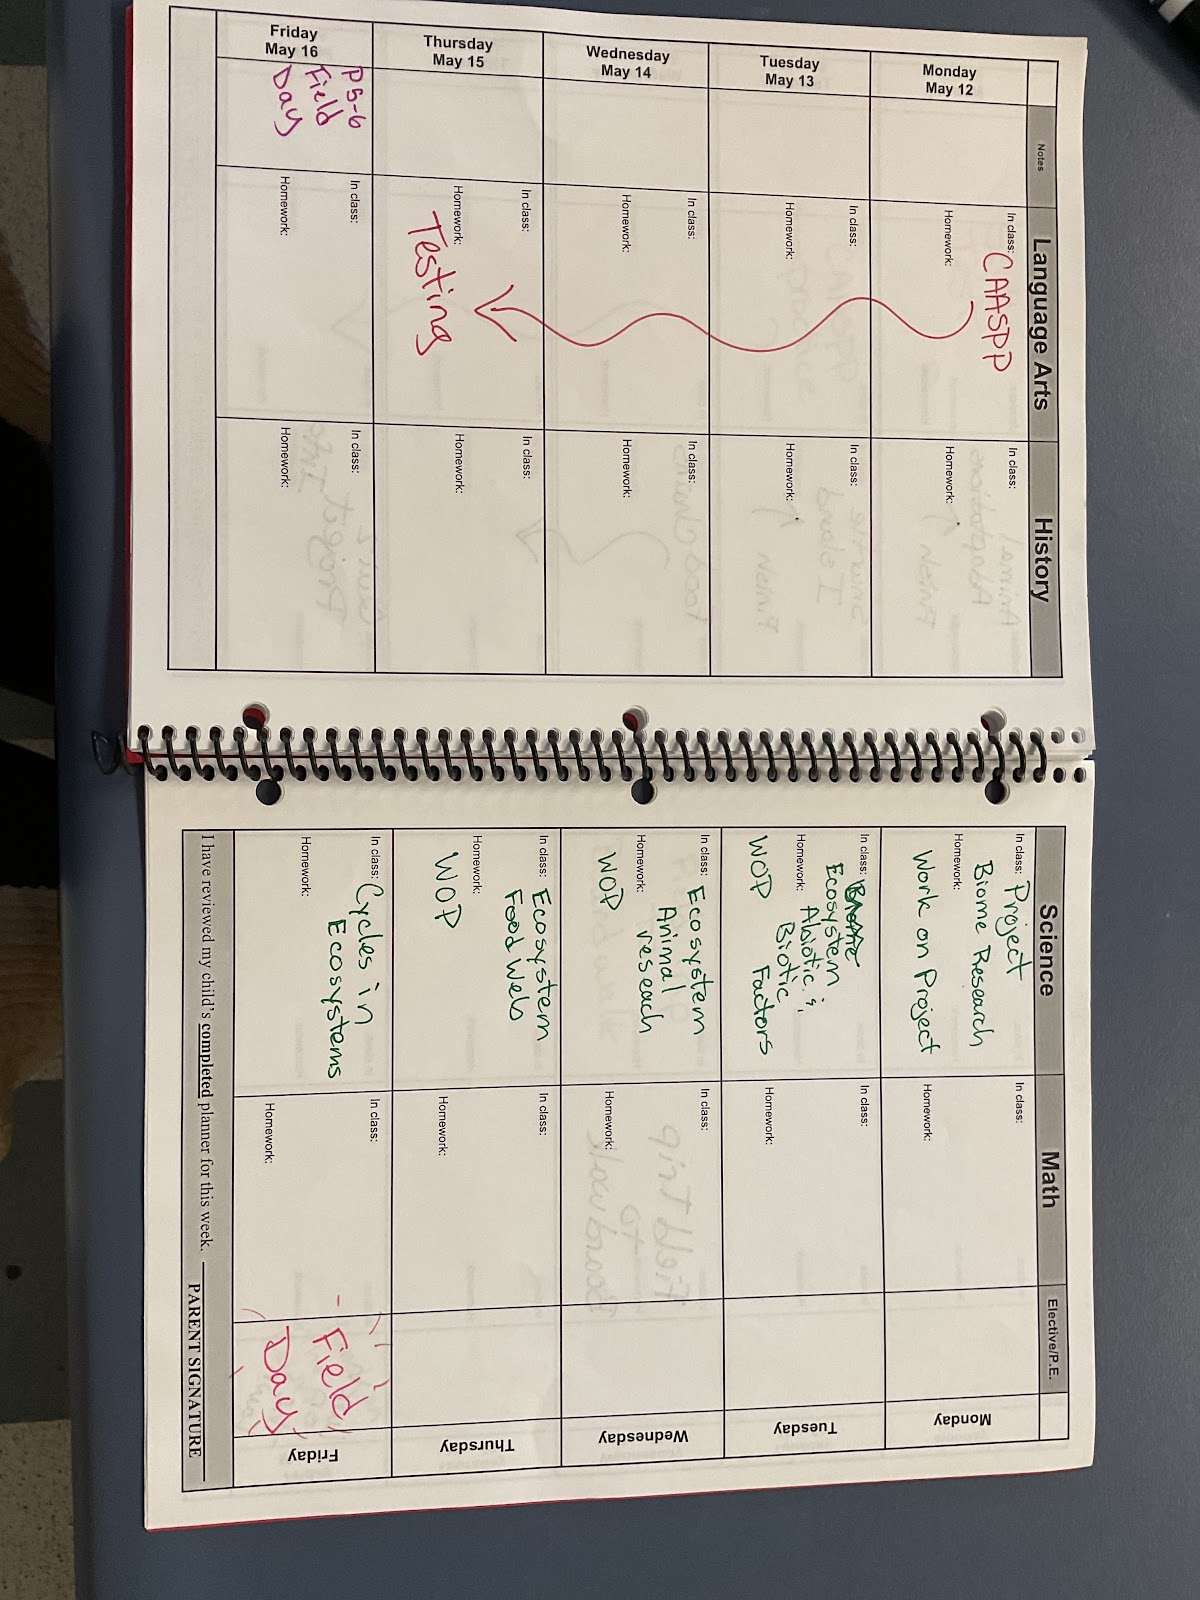 Notes
Language Arts
History
Monday
May 12
In class: CAASPP
Homework:
In class:
Homework:
Tuesday
May 13
In class:
Homework:
In class:
Homework:
Wednesday
May 14
In class:
Homework:
In class:
Homework:
Thursday
May 15
In class:
Homework:
Testing
In class:
Homework:
Friday
May 16
PS-6
Field
Day
In class:
Homework:
In class:
Homework:
Science
Math
Elective/P.E.
In class: Project
Biome Research
Homework:
Work on Project
In class:
Homework:
Monday
In class:
Ecosystem
Abiotic &
Homework: Biotic
WOP Factors
In class:
Homework:
Tuesday
In class: Ecosystem
Animal
reseach
Homework:
WOP
In class:
Homework:
Wednesday
In class: Ecosystem
Food Webs
Homework:
WOP
In class:
Homework:
Thursday
In class: Cycles in
Ecosystems
Homework:
In class:
Homework:
Field
Day
Friday
I have reviewed my child's completed planner for this week.
PARENT SIGNATURE